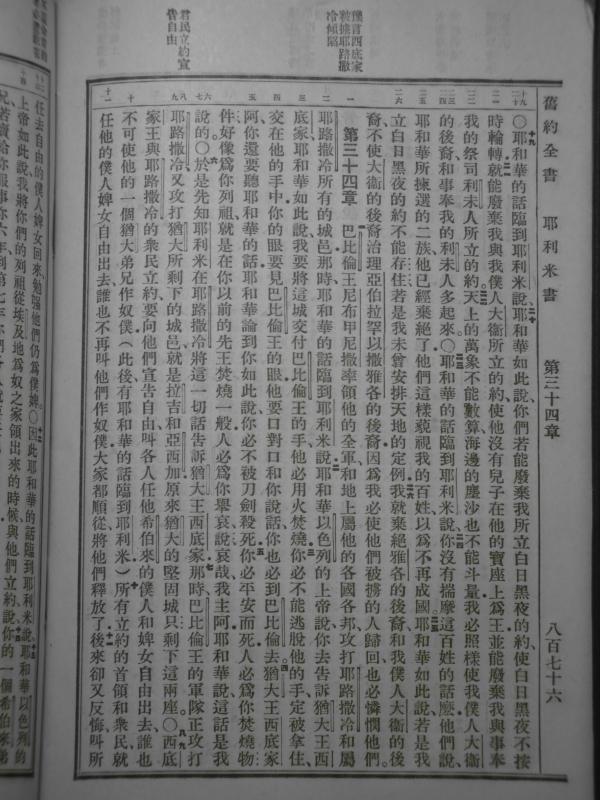 舊約全書 耶利米書 第三十四章 八百七十六
〇耶和華的話臨到耶利米說、耶和華如此說、你們若能廢棄我所立白日黑夜的約、使白日黑夜不按
時輪轉、就能廢棄我與我僕人大衛所立的約、使他沒有兒子在他的寶座上爲王、並能廢棄我與事奉
我的祭司利未人所立的約、天上的萬象不能數算、海邊的塵沙也不能斗量、我必照樣使我僕人大衛
的後裔和事奉我的利未人多起來、〇耶和華的話臨到耶利米說、你沒有揣摩這百姓的話麽、他們說、
耶和華所揀選的二族、他已經棄絕了、他們這樣藐視我的百姓、以爲不再成國、耶和華如此說、若是我
立白日黑夜的約不能存住、若是我未曾安排天地的定例、我就棄絕雅各的後裔、和我僕人大衛的後
裔、不使大衛的後裔治理亞伯拉罕以撒雅各的後裔、因爲我必使他們被擄的人歸回、也必憐憫他們、
第三十四章 巴比倫王尼布甲尼撒率領他的全軍、和地上屬他的各國各邦、攻打耶路撒冷和屬
耶路撒冷所有的城邑、那時耶和華的話臨到耶利米說、耶和華以色列的上帝說、你去告訴猶大王西
底家、耶和華如此說、我要將這城交付巴比倫王的手、他必用火焚燒、你必不能逃脫他的手、定被拿住、
交在他的手中、你的眼要見巴比倫王的眼、他要口對口和你說話、你也必到巴比倫去、猶大王西底家
阿、你還要聽耶和華的話、耶和華論到你如此說、你必不被刀劍殺死、你必平安而死、人必爲你焚燒物
件、好像爲你列祖就是在你以前的先王焚燒一般、人必爲你舉哀說、哀哉、我主阿、耶和華說、這話是我
說的、〇於是先知耶利米在耶路撒冷將這一切話告訴猶大王西底家、那時巴比倫王的軍隊正攻打
耶路撒冷、又攻打猶大所剩下的城邑、就是拉吉和亞西加、原來猶大的堅固城、只剩下這兩座、〇西底
家王與耶路撒冷的衆民立約、要向他們宣告自由、叫各人任他希伯來的僕人和婢女自由出去、誰也
不可使他的一個猶大弟兄作奴僕（此後有耶和華的話臨到耶利米）所有立約的首領和衆民、就
任他的僕人婢女自由出去、誰也不再叫他們作奴僕、大家都順從、將他們釋放了、後來卻又反悔、叫所
君民立約宣
告自由
任去自由的僕人婢女回來、勉強他們仍爲僕婢、〇因此耶和華的話臨到耶利米說、耶和華以色列的
上帝如此說、我將你們的列祖從埃及地爲奴之家領出來的時候、與他們立約說、你的一個希伯來弟